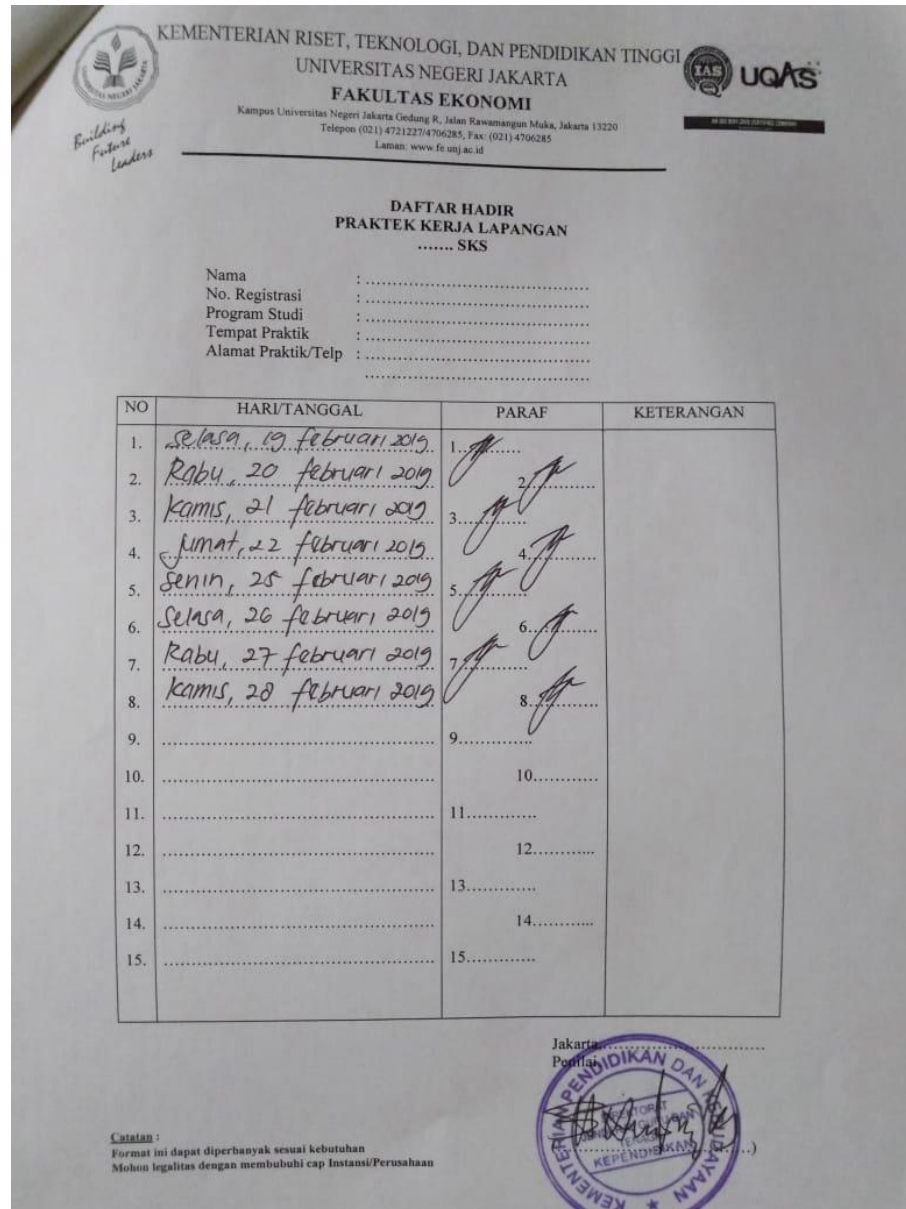 KEMENTERIAN RISET, TEKNOLOGI, DAN PENDIDIKAN TINGGI
UNIVERSITAS NEGERI JAKARTA
FAKULTAS EKONOMI
Kampus Universitas Negeri Jakarta Gedung R, Jalan Rawamangun Muka, Jakarta 13220
Telepon (021) 4721227/4706285, Fax: (021) 4706285
Laman: www.fe.unj.ac.id
Building
Future
Leaders
IAS
UQAS
DAFTAR HADIR
PRAKTEK KERJA LAPANGAN
....... SKS
Nama : ..........................................
No. Registrasi : ..........................................
Program Studi : ..........................................
Tempat Praktik : ..........................................
Alamat Praktik/Telp : ..........................................
..........................................
NO HARI/TANGGAL PARAF KETERANGAN
1. Selasa, 19 februari 2019 1.
2. Rabu, 20 februari 2019 2.
3. Kamis, 21 februari 2019 3.
4. Jumat, 22 februari 2019 4.
5. Senin, 25 februari 2019 5.
6. Selasa, 26 februari 2019 6.
7. Rabu, 27 februari 2019 7.
8. Kamis, 28 februari 2019 8.
9. .......................................... 9.............
10. .......................................... 10............
11. .......................................... 11.............
12. .......................................... 12............
13. .......................................... 13.............
14. .......................................... 14............
15. .......................................... 15.............
Jakarta,..............................
Penilai,
KEMENTERIAN PENDIDIKAN DAN KEBUDAYAAN
KEPENDIDIKAN
Catatan :
Format ini dapat diperbanyak sesuai kebutuhan
Mohon legalitas dengan membubuhi cap Instansi/Perusahaan